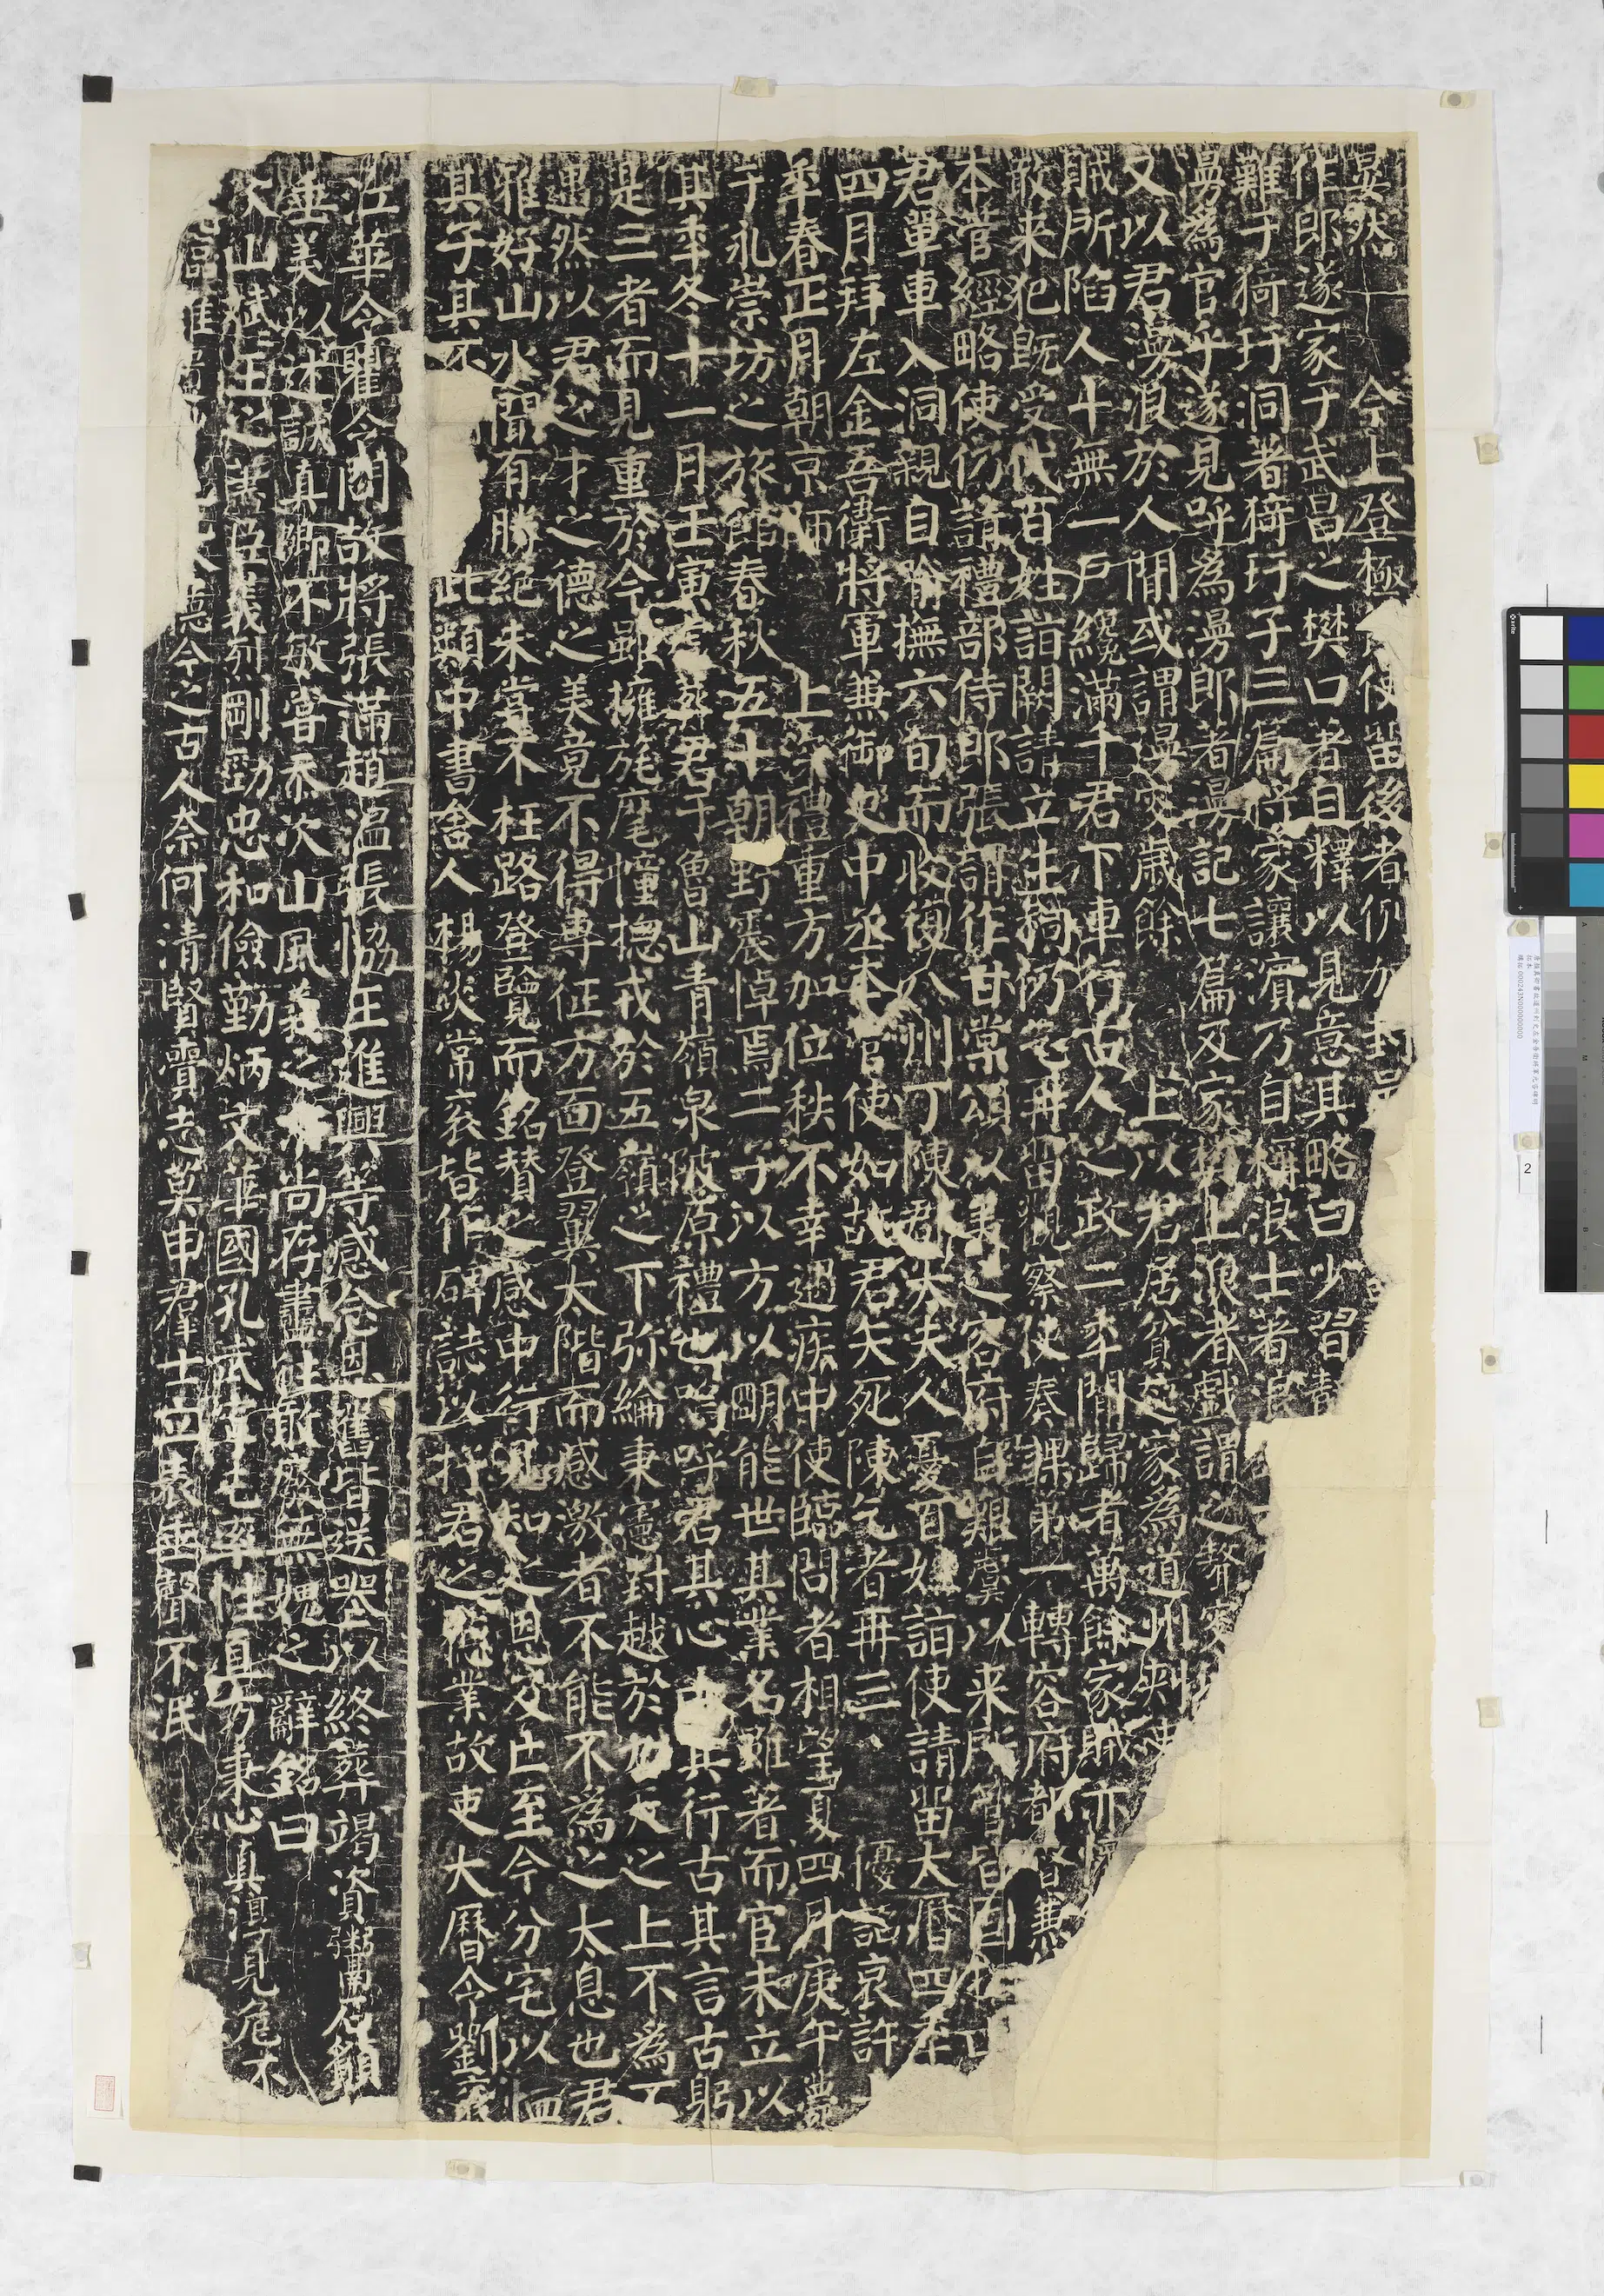 晏然 今上登極 使留後者例加封邑
作郎遂家于武昌之樊口著自釋以見意其略曰少習
難于猗玗洞著猗玗子三篇將家讓濱乃自稱浪士著浪
曼為官乎遂見呼為漫郎著漫記七篇及家樊上浪者戲謂之聱
又以君漫浪於人間或謂漫叟歲餘 上以君居貧起家為道州刺史
賊所陷人十無一戶纔滿千君下車行古人之政二年間歸者萬餘家賊亦懷
散來犯既受代百姓詣闕請立生祠仍乞再留觀察使奏課第一轉容府都督兼
本管經略使仍請禮部侍郎張謂作甘棠頌以美之容府自艱虞以來所管皆固
君單車入洞親自喻撫六旬而收復八州丁陳郡太夫人憂百姓詣使請留大曆四年
四月拜左金吾衛將軍兼御史中丞本管使如故君矢死陳乞者再三 優詔哀許
年春正月朝京師 上深禮重方加位秩不幸遇疾中使臨問者相望夏四月庚午薨
于永崇坊之旅館春秋五十朝野震悼焉二子以方以明能世其業名雖著而官未立以
其年冬十一月壬寅虔葬君于魯山青嶺泉陂原禮也嗚呼君其心古其行古其言古躬
是三者而見重於今雖擁旄麾幢總戎於五嶺之下弥綸秉憲對越於九天之上不為不
遇然以君之才之德之美竟不得專征方面登翼太階而感激者不能不為之太息也君
雅好山水聞有勝絕未嘗不枉路登覽而銘贊之感中行見知之恩及亡至今分宅以恤
其子其不 此類中書舍人楊炎常袞皆作碑誌以抒君之德業故吏大曆令劉袞
江華令瞿令問故將張滿趙溫張協王進興等感念恩舊皆送喪以終葬竭資鬻石願
垂美以述誠真卿不敏嘗忝次山風義之末尚存盡往敢廢無愧之辭銘曰
次山斌斌王之藎臣義烈剛勁忠和儉勤炳文華國孔武寧屯率性直方秉心真淳見危不
今之古人奈何清賢賫志莫申羣士立表垂聲不泯
2